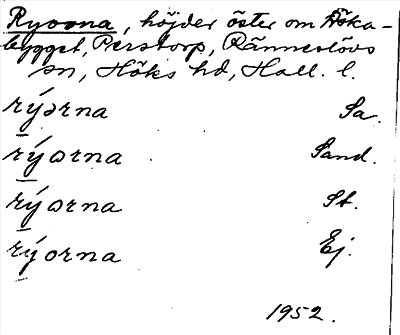 Ryorna, höjder öster om Höka-
bygget, Perstorp, Ränneslövs
sn, Höks hd, Hall. l.
rýorna Sa.
rýorna Sand.
rýorna St.
rýorna Ej.
1952.